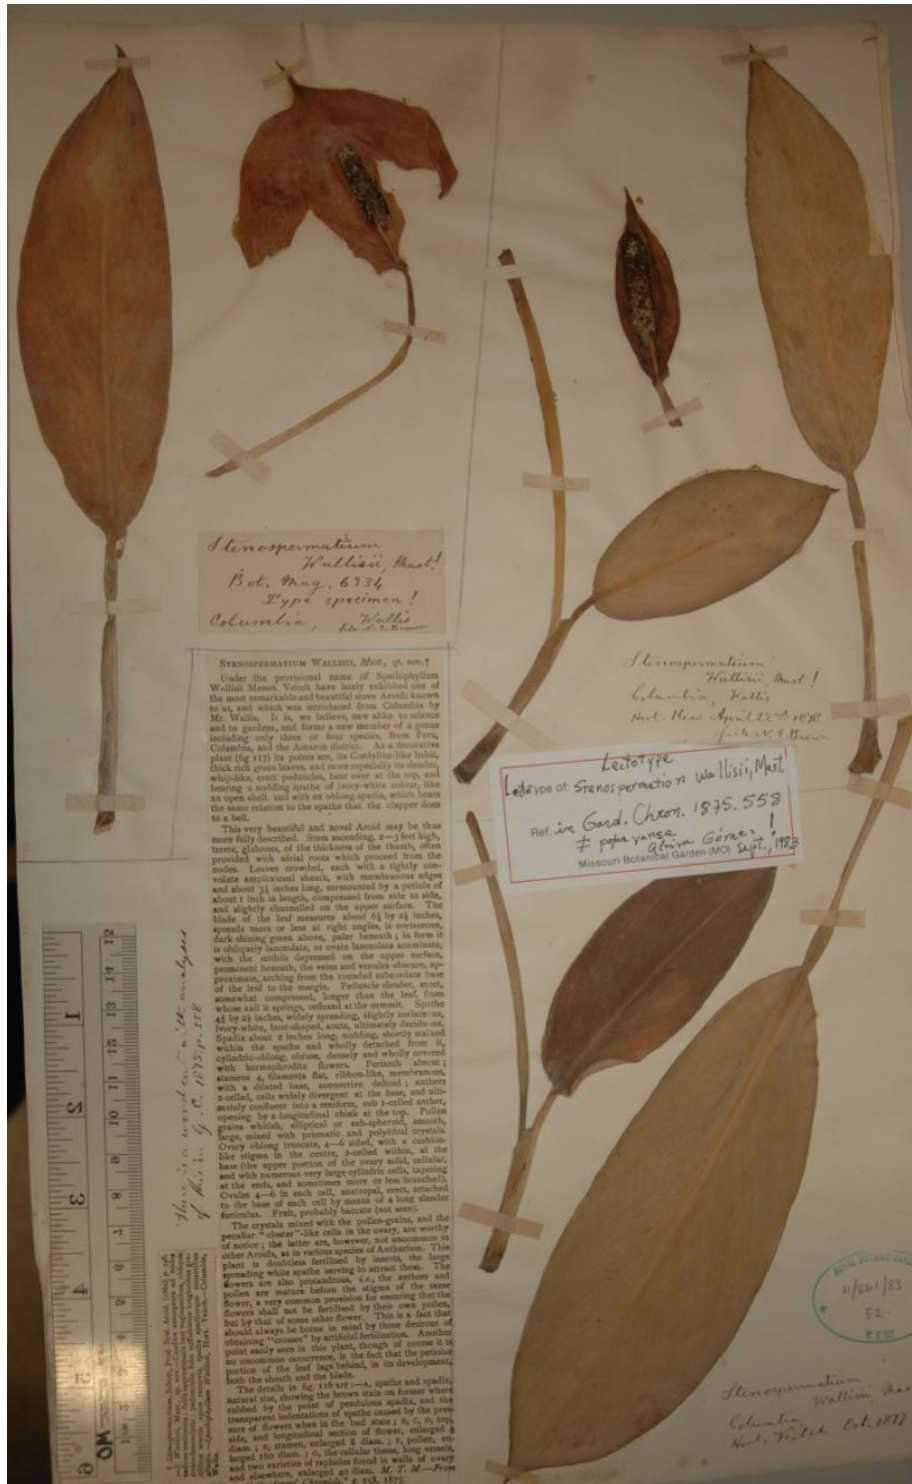 Stenospermatium
Wallisii, Mast!
Bot. Mag. 6334
Type specimen!
Columbia, Wallis
fide N. E. Brown
STENOSPERMATIUM WALLISII, Mast., sp. nov.†
Under the provisional name of Spathiphyllum
Wallisii Messrs. Veitch have lately exhibited one of
the most remarkable and beautiful stove Aroids known
to us, and which was introduced from Columbia by
Mr. Wallis. It is, we believe, new alike to science
and to gardens, and forms a new member of a genus
including only three or four species, from Peru,
Columbia, and the Amazon district. As a decorative
plant (fig 117) its points are, its Cordyline-like habit,
thick rich green leaves, and more especially its slender,
whip-like, erect peduncles, bent over at the top, and
bearing a nodding spathe of ivory-white colour, like
an open shell, and with an oblong spadix, which bears
the same relation to the spathe that the clapper does
to a bell.
This very beautiful and novel Aroid may be thus
more fully described. Stem ascending, 2—3 feet high,
terete, glabrous, of the thickness of the thumb, often
provided with aërial roots which proceed from the
nodes. Leaves crowded, each with a tightly con-
volute amplexicaul sheath, with membranous edges
and about 3½ inches long, surmounted by a petiole of
about 1 inch in length, compressed from side to side,
and slightly channelled on the upper surface. The
blade of the leaf measures about 6½ by 2½ inches,
spreads more or less at right angles, is coriaceous,
dark shining green above, paler beneath; in form it
is obliquely lanceolate, or ovate lanceolate acuminate,
with the midrib depressed on the upper surface,
prominent beneath, the veins and venules obscure, ap-
proximate, arching from the rounded subcordate base
of the leaf to the margin. Peduncle slender, erect,
somewhat compressed, longer than the leaf, from
whose axil it springs, reflexed at the summit. Spathe
4½ by 2½ inches, widely spreading, slightly coriaceous,
ivory-white, boat-shaped, acute, ultimately deciduous.
Spadix about 2 inches long, nodding, shortly stalked
within the spathe and wholly detached from it,
cylindric-oblong, obtuse, densely and wholly covered
with hermaphrodite flowers. Perianth absent;
stamens 4, filaments flat, ribbon-like, membranous,
with a dilated base, connective deltoid; anthers
2-celled, cells widely divergent at the base, and ulti-
mately confluent into a reniform, sub 1-celled anther,
opening by a longitudinal chink at the top. Pollen
grains whitish, elliptical or sub-spheroid, smooth,
large, mixed with prismatic and polyédral crystals.
Ovary oblong truncate, 4—6 sided, with a cushion-
like stigma in the centre, 2-celled within, at the
base (the upper portion of the ovary solid, cellular,
and with numerous very large cylindric cells, tapering
at the ends, and sometimes more or less branched).
Ovules 4—6 in each cell, anatropal, erect, attached
to the base of each cell by means of a long slender
funiculus. Fruit, probably baccate (not seen).
The crystals mixed with the pollen-grains, and the
peculiar "closter"-like cells in the ovary, are worthy
of notice; the latter are, however, not uncommon in
other Aroids, as in various species of Anthurium. This
plant is doubtless fertilised by insects, the large
spreading white spathe serving to attract them. The
flowers are also protandrous, i.e., the anthers and
pollen are mature before the stigma of the same
flower, a very common provision for ensuring that the
flowers shall not be fertilised by their own pollen,
but by that of some other flower. This is a fact that
should always be borne in mind by those desirous of
obtaining "crosses" by artificial fertilisation. Another
point easily seen in this plant, though of course it is
no uncommon occurrence, is the fact that the petiolar
portion of the leaf lags behind, in its development,
both the sheath and the blade.
The details in fig. 116 are:—A, spathe and spadix,
natural size, showing the brown stain on former where
rubbed by the point of pendulous spadix, and the
transparent indentations of spathe caused by the pres-
sure of flowers when in the bud state; B, C, D, top,
side, and longitudinal section of flower, enlarged 4
diam.; E, stamen, enlarged 8 diam.; F, pollen, en-
larged 160 diam.; G, the cellular tissue, long vessels,
and two varieties of raphides found in walls of ovary
and elsewhere, enlarged 40 diam. M. T. M.—From
"Gardeners' Chronicle," p. 558, 1875.
There is a woodcut with analyses
of this in G. C. 1875. p. 558
Stenospermatium
Wallisii, Mast!
Columbia, Wallis
Hort. Kew April 22nd 1878
fide N. E. Brown
Lectotype
Lectotype of: Stenospermation wallisii, Mast.
Ref. in Gard. Chron. 1875. 558
≠ popayanse !
Gómez Sept., 1983
Missouri Botanical Garden (MO)
ROYAL BOTANIC GARDENS
52
KEW
Stenospermatium
Wallisii Mast
Columbia
Hort. Veitch Oct. 1877
1 2 3 4 5 6
CM